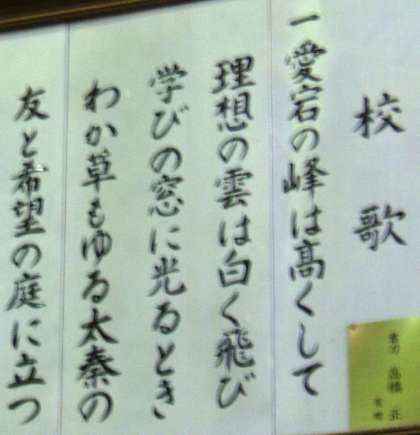 校歌
一 愛宕の峰は高くして
理想の雲は白く飛び
学びの窓に光るとき
わか草もゆる太秦の
友と希望の庭に立つ
高橋